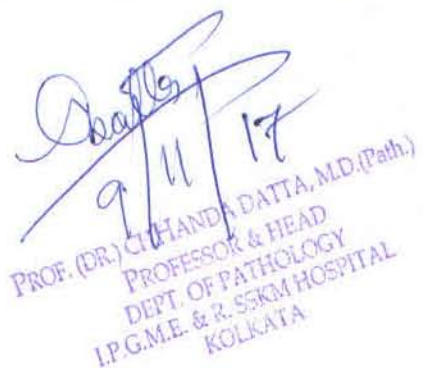 9/11/17
PROF. (DR.) CHHANDA DATTA, M.D.(Path.)
PROFESSOR & HEAD
DEPT. OF PATHOLOGY
I.P.G.M.E. & R. SSKM HOSPITAL
KOLKATA